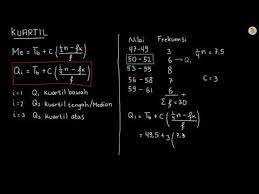 KUARTIL
Me = Tb + C (½n - fk / f)
Qi = Tb + C (i/4 n - fk / f)
i = 1 Q₁ kuartil bawah
i = 2 Q₂ kuartil tengah/Median
i = 3 Q₃ kuartil atas
Nilai Frekuensi
47-49 3
50-52 6 → Q₁
53-55 8
56-58 7
59-61 6
Σf = 30
¼n = 7.5
C = 3
Q₁ = Tb + C (¼n - fk / f)
= 49,5 + 3 (7.5